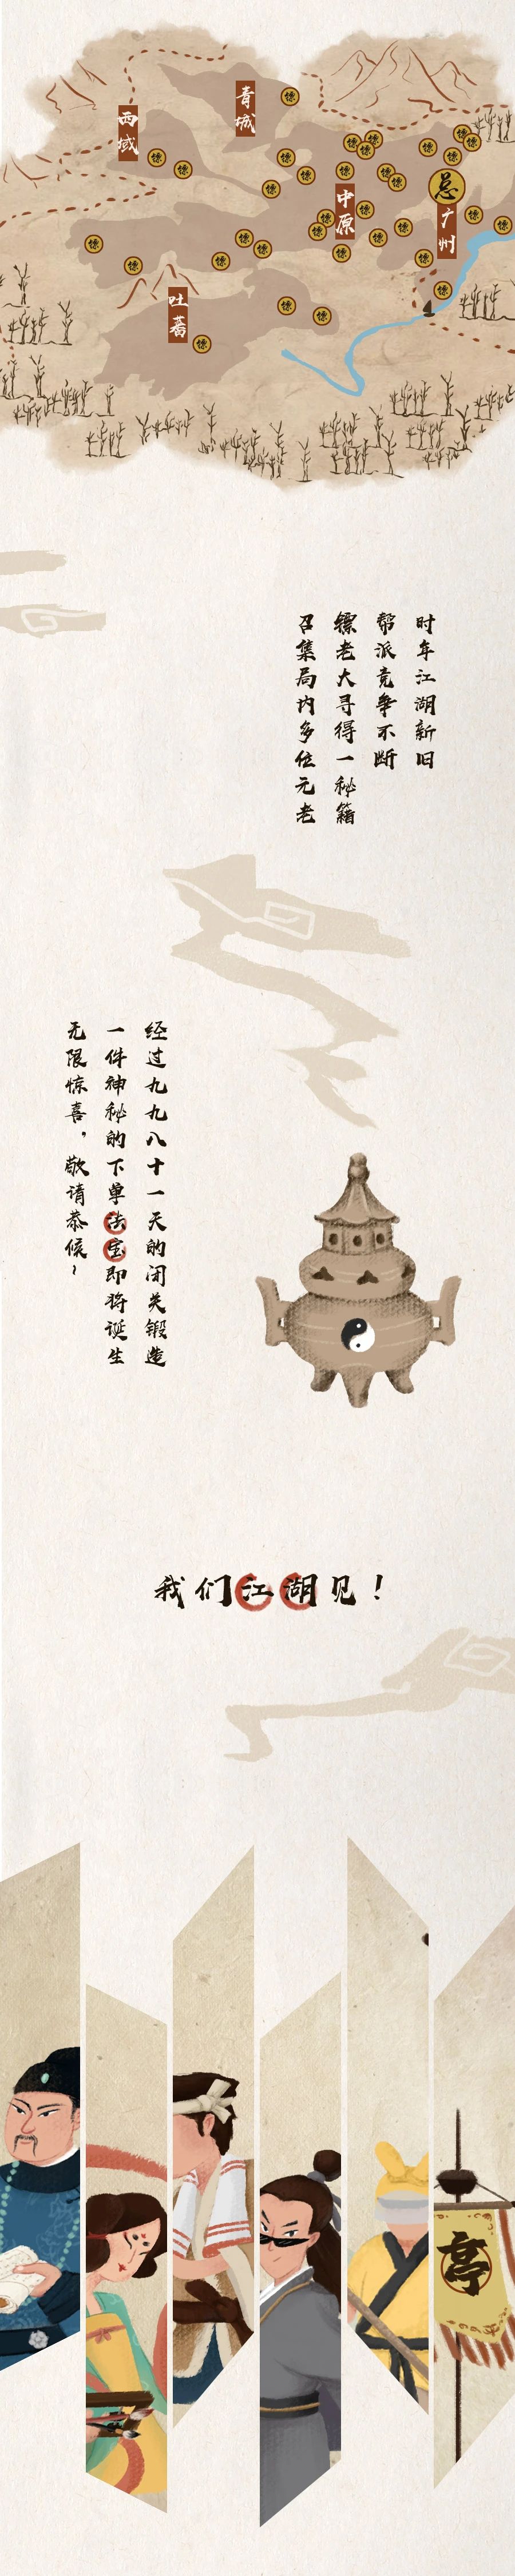 青城
西域
总
中原
广州
吐蕃
时年江湖新旧
帮派竞争不断
镖老大寻得一秘籍
召集局内多位元老
经过九九八十一天的闭关锻造
一件神秘的下单法宝即将诞生
无限惊喜，敬请恭候~
我们江湖见！
亭